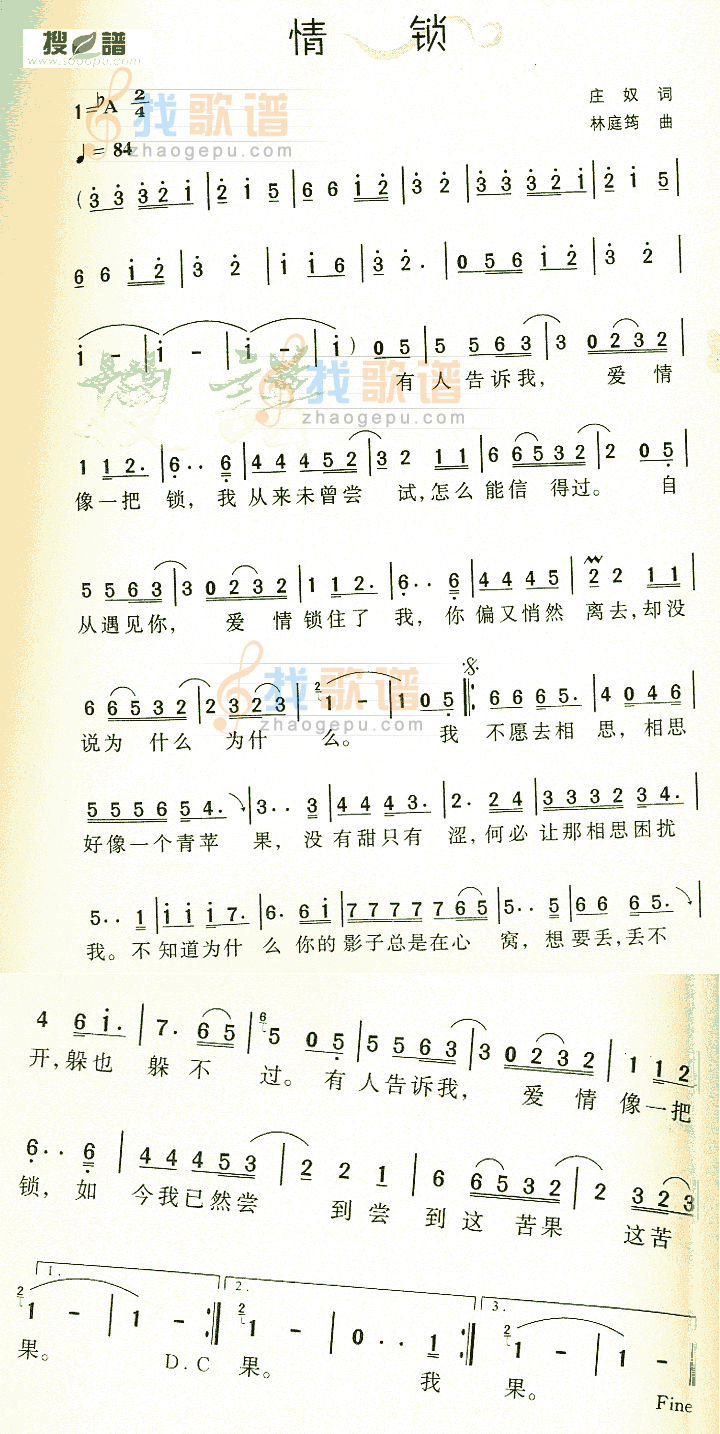 搜谱
www.sooopu.com
情 锁
1=♭A 2/4
庄奴 词
林庭筠 曲
♩=84
找歌谱
zhaogepu.com
(3 3 3 2 1 | 2 1 5 | 6 6 1 2 | 3 2 | 3 3 3 2 1 | 2 1 5 |
6 6 1 2 | 3 2 | 1 1 6 | 3 2 . | 0 5 6 1 2 | 3 2 |
1 - | 1 - | 1 - | 1 ) 0 5 | 5 5 6 3 | 3 0 2 3 2 |
有人告诉我, 爱情
找歌谱
zhaogepu.com
1 1 2 . | 6 . . 6 | 4 4 4 5 2 | 3 2 1 1 | 6 6 5 3 2 | 2 0 5 |
像一把 锁, 我从来未曾尝 试,怎么能信 得过。 自
5 5 6 3 | 3 0 2 3 2 | 1 1 2 . | 6 . . 6 | 4 4 4 5 | 2 2 1 1 |
从遇见你, 爱 情锁住了 我,你偏又悄然 离去,却没
找歌谱
zhaogepu.com
6 6 5 3 2 | 2 3 2 3 | 2 1 - | 1 0 5 :| 6 6 6 5 . | 4 0 4 6 |
说为 什么 为什 么。 我 不愿去相 思,相思
5 5 5 6 5 4 . | 3 . . 3 | 4 4 4 3 . | 2 . 2 4 | 3 3 3 2 3 4 . |
好像一个青苹 果, 没有甜只有 涩,何必让那相思困扰
5 . . 1 | 1 1 1 7 . | 6 . 6 1 | 7 7 7 7 7 6 5 | 5 . . 5 | 6 6 6 5 . |
我。不知道为什 么你的影子总是在心 窝,想要丢,丢不
4 6 1 . | 7 . 6 5 | 6 5 0 5 | 5 5 6 3 | 3 0 2 3 2 | 1 1 2
开,躲也 躲 不 过。有人告诉我, 爱 情像一把
6 . . 6 | 4 4 4 5 3 | 2 2 1 | 6 6 5 3 2 | 2 3 2 3
锁,如 今我已然尝 到尝 到这苦果 这苦
1. 2. 3.
2 1 - | 1 - :| 2 1 - | 0 . . 1 :| 2 1 - | 1 -
果。 D.C 果。 我 果。
Fine